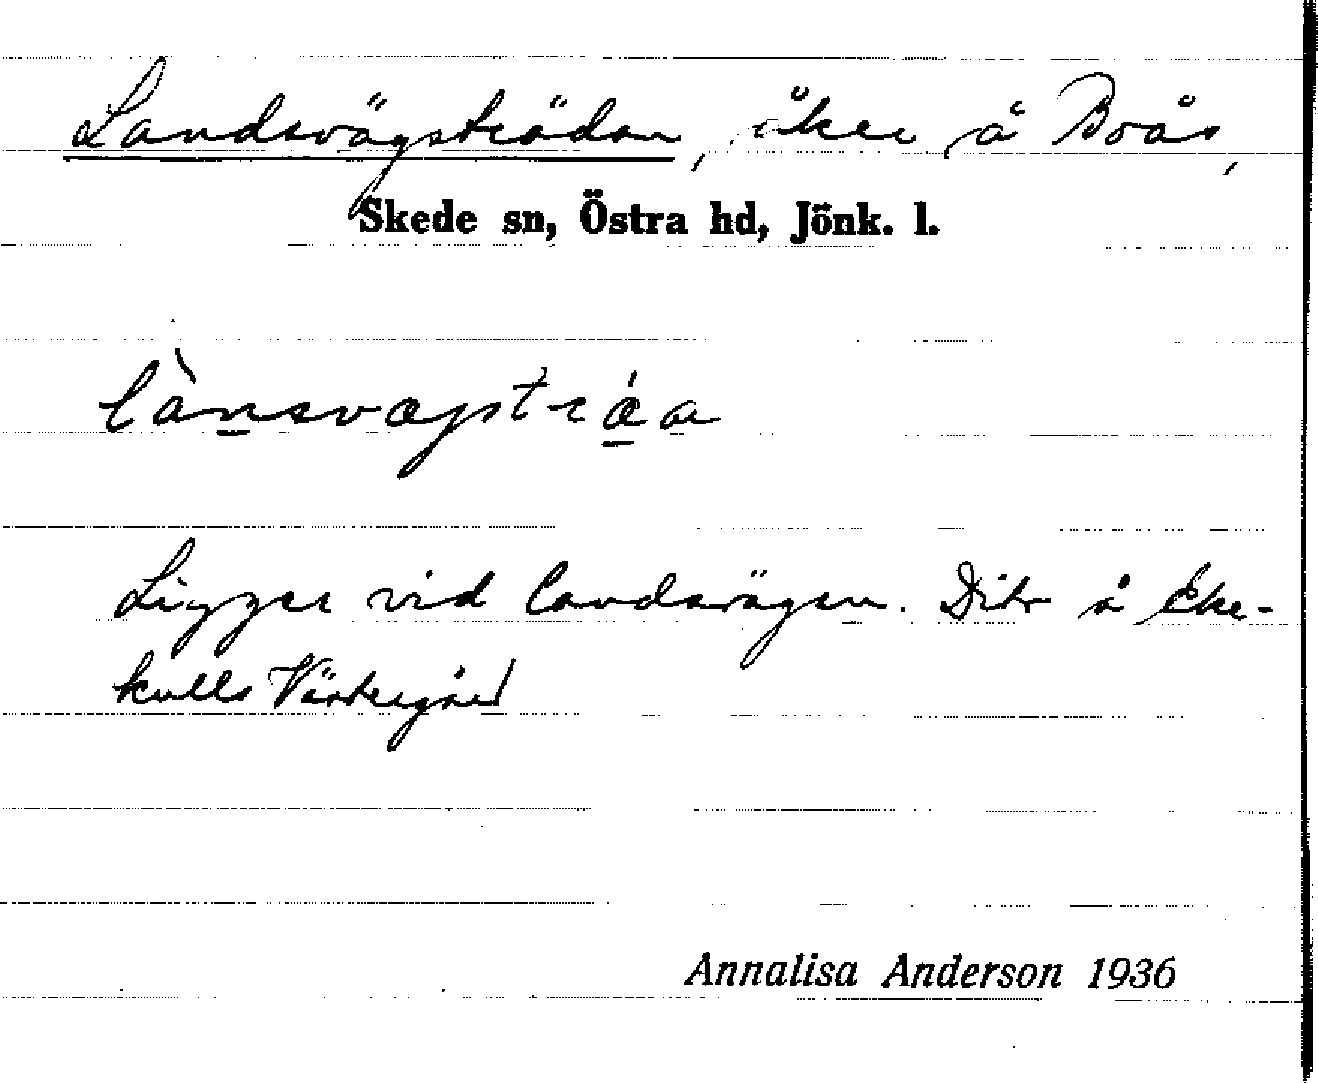 Landsvägsträdan, åker å Boås,
Skede sn, Östra hd, Jönk. l.
lànsvægstræ̀a
Ligger vid landsvägen. Dito å Eke-
kulls Västergård
Annalisa Anderson 1936